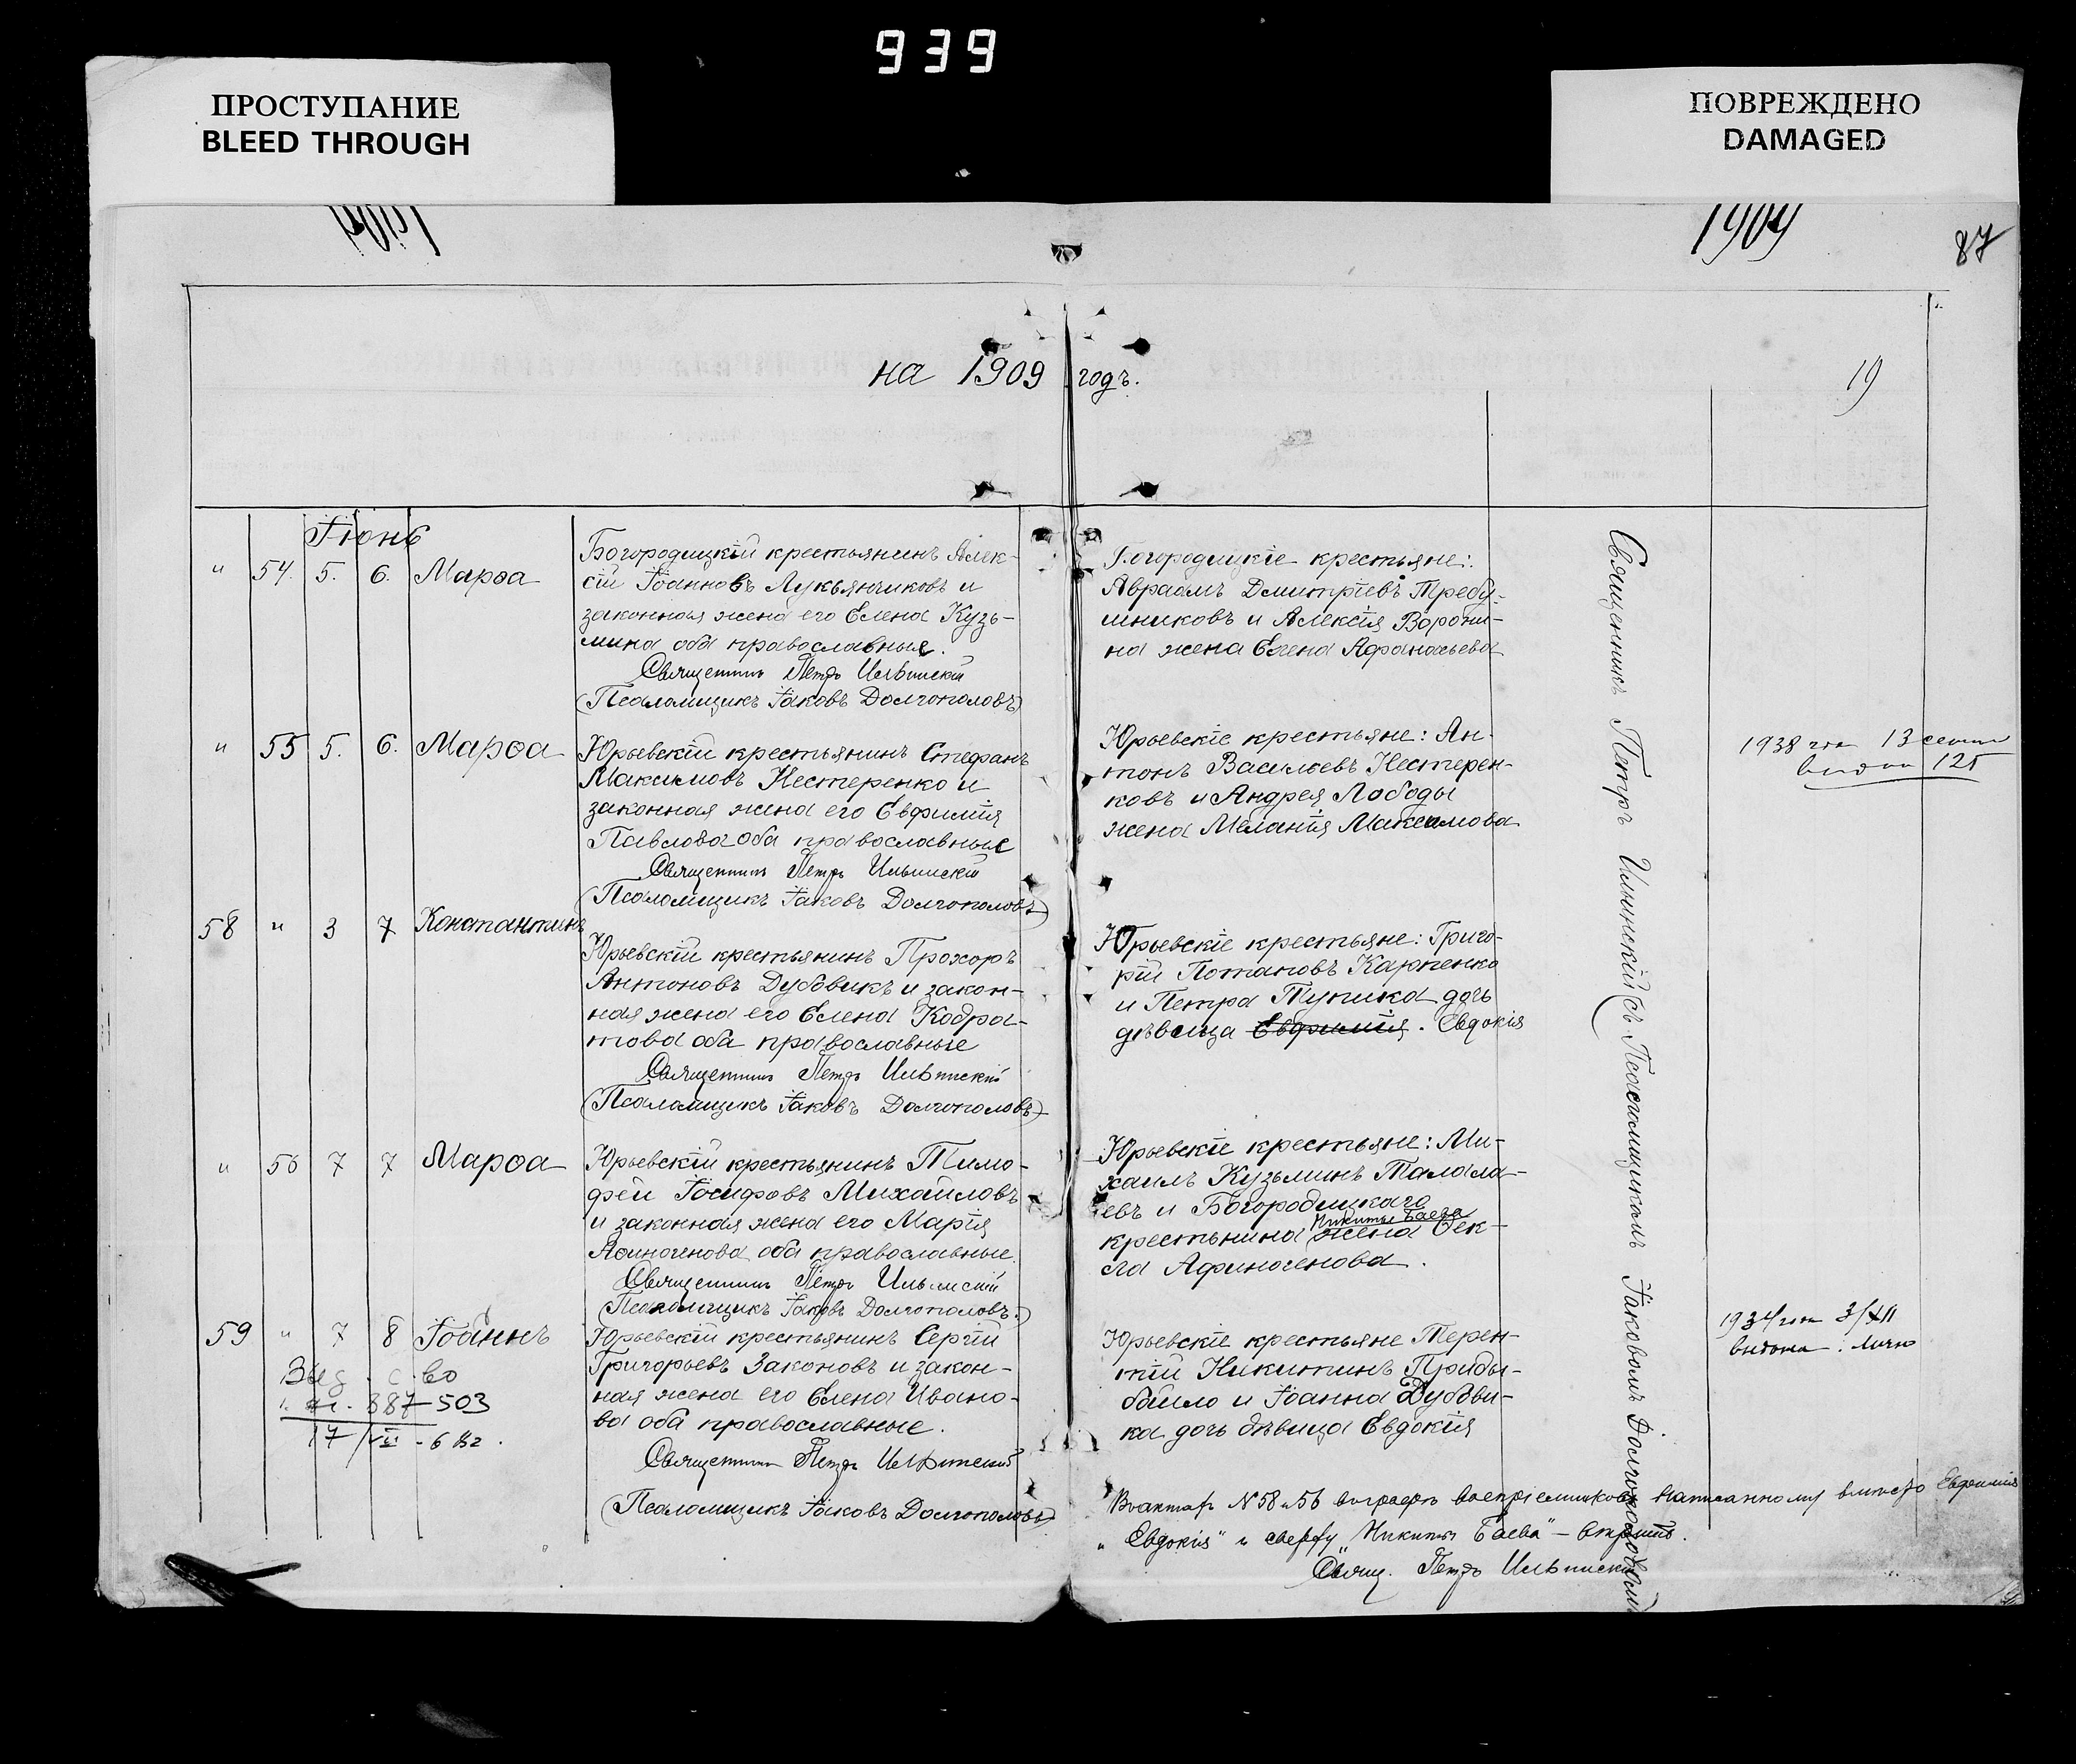 939
ПРОСТУПАНИЕ
BLEED THROUGH
ПОВРЕЖДЕНО
DAMAGED
1909
87
на 1909 годъ.
19
Іюнь
" 54. 5. 6. Марѳа
Богородицкій крестьянинъ Алек-
сій Іоанновъ Лукьянчиковъ и
законная жена его Елена Кузь-
мина оба православные.
Священникъ Петръ Ильинскій
(Псаломщикъ Іаковъ Долгополовъ)
Богородицкіе крестьяне:
Авраамъ Дмитріевъ Требу-
шниковъ и Алексія Ворони-
на жена Елена Афанасьева
" 55 5. 6. Марѳа
Юрьевскій крестьянинъ Стефанъ
Максимовъ Нестеренко и
законная жена его Евфимія
Павлова оба православные
Священникъ Петръ Ильинскій
(Псаломщикъ Іаковъ Долгополовъ)
Юрьевскіе крестьяне: Ан-
тонъ Васильевъ Нестерен-
ковъ и Андрея Лободы
жена Меланія Максимова
1938 13
125
58 " 3 7 Константинъ
Юрьевскій крестьянинъ Прохоръ
Антоновъ Дубовикъ и закон-
ная жена его Елена Кодра-
това оба православные
Священникъ Петръ Ильинскій
(Псаломщикъ Іаковъ Долгополовъ)
Юрьевскіе крестьяне: Григо-
рій Потаповъ Карпенко
и Петра Тупика дочь
дѣвица Евфимія. Евдокія
" 56 7 7 Марѳа
Юрьевскій крестьянинъ Тимо-
фей Іосифовъ Михайловъ
и законная жена его Марія
Аѳиногенова оба православные.
Священникъ Петръ Ильинскій
(Псаломщикъ Іаковъ Долгополовъ.)
Юрьевскіе крестьяне: Ми-
хаилъ Кузьминъ Талала-
евъ и Богородицкаго
Никиты Баева
крестьнина жена Ѳек-
ла Афиногенова.
59 " 7 8 Іоаннъ
Юрьевскій крестьянинъ Сергій
Григорьевъ Законовъ и закон-
ная жена его Елена Ивано-
ва оба православные.
Священникъ Петръ Ильинскій
(Псаломщикъ Іаковъ Долгополовъ)
Юрьевскіе крестьяне Терен-
тій Никитинъ Приды-
байло и Іоанна Дубови-
ка дочь дѣвица Евдокія
Выд. с-во
387-503
17/VI
1934 3/XII
Священникъ Петръ Ильинскій (съ Псаломщикомъ Іаковомъ Долгополовымъ
№ 58 и 56 воспріемниковъ написанному вмѣсто Евфимія
„Евдокія" и сверху „Никиты Баева" – вѣрить.
Свящ. Петръ Ильинскій